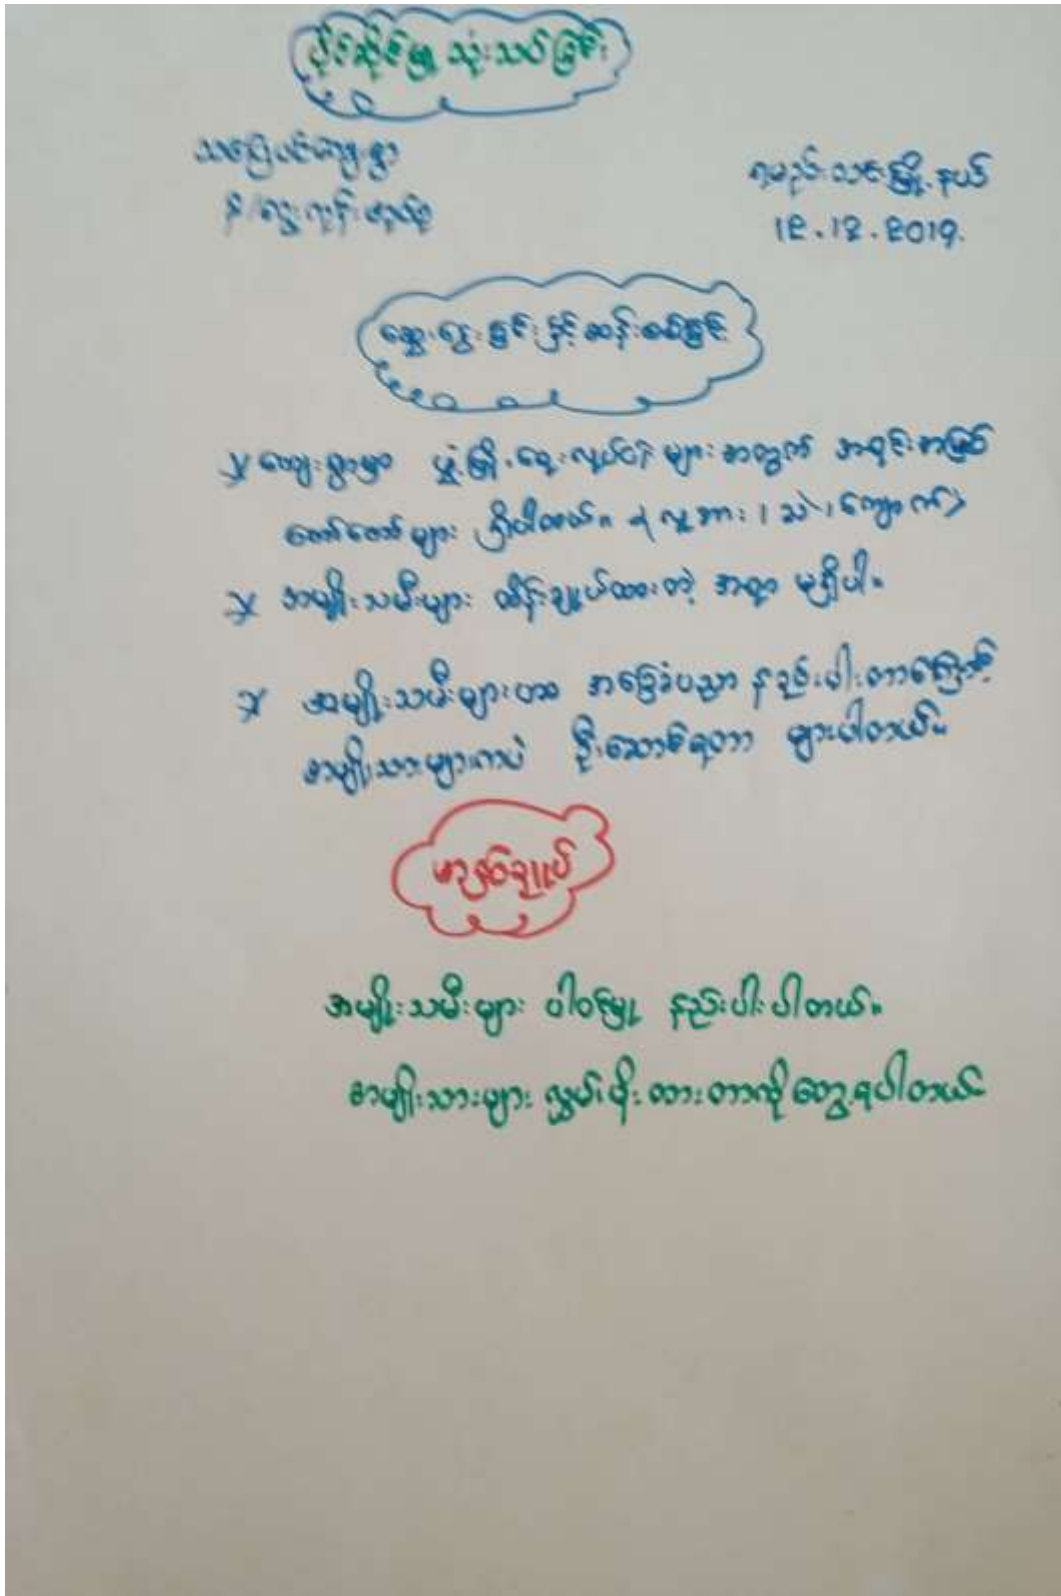 ပိုင်ဆိုင်မှု သုံးသပ်ခြင်း
သပြေပင်ကျေးရွာ
ရမည်းသင်းမြို့နယ်
12.12.2019.
ဆွေးနွေးခြင်းနှင့် ဆန်းစစ်ခြင်း
ကျေးရွာမှာ ဖွံ့ဖြိုးရေးလုပ်ငန်းများအတွက် အရင်းအမြစ်
တော်တော်များ ရှိပါတယ်။ (လူအား၊ သဲ၊ ကျောက်)
အမျိုးသမီးများ ထိန်းချုပ်ထားတဲ့ အရာ မရှိပါ။
အမျိုးသမီးများဟာ အခြေခံပညာ နည်းပါးတာကြောင့်
အမျိုးသားများကပဲ ဦးဆောင်ရတာ များပါတယ်။
အနှစ်ချုပ်
အမျိုးသမီးများ ပါဝင်မှု နည်းပါးပါတယ်။
အမျိုးသားများ လွှမ်းမိုးထားတာကို တွေ့ရပါတယ်